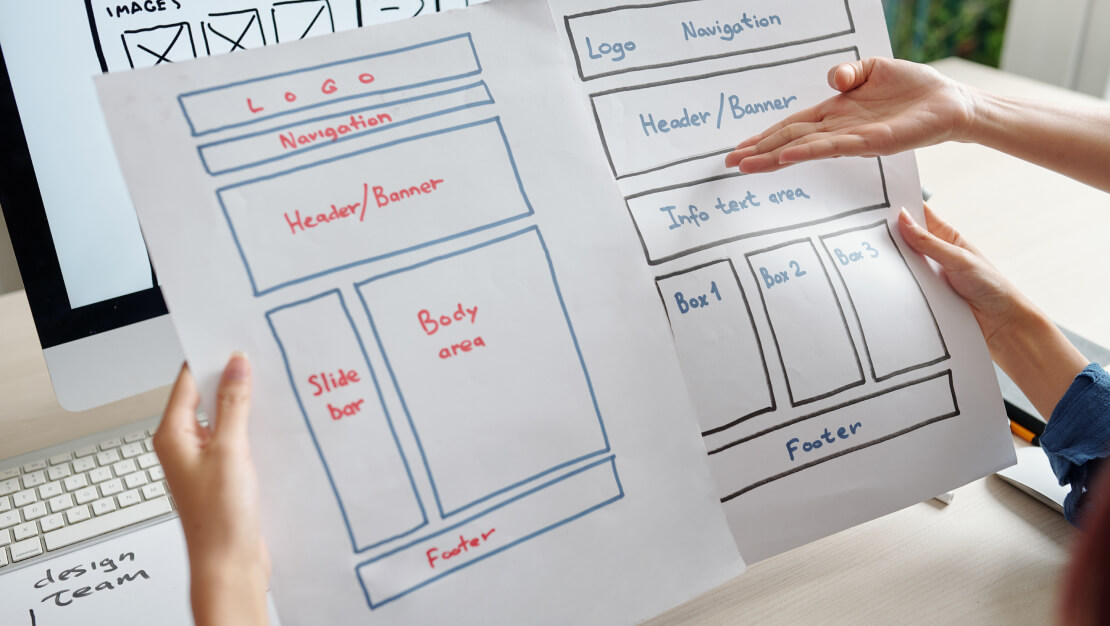 IMAGES
LOGO
Navigation
Header/Banner
Slide
bar
Body
area
Footer
Logo Navigation
Header/Banner
Info text area
Box 1
Box 2
Box 3
Footer
design
team